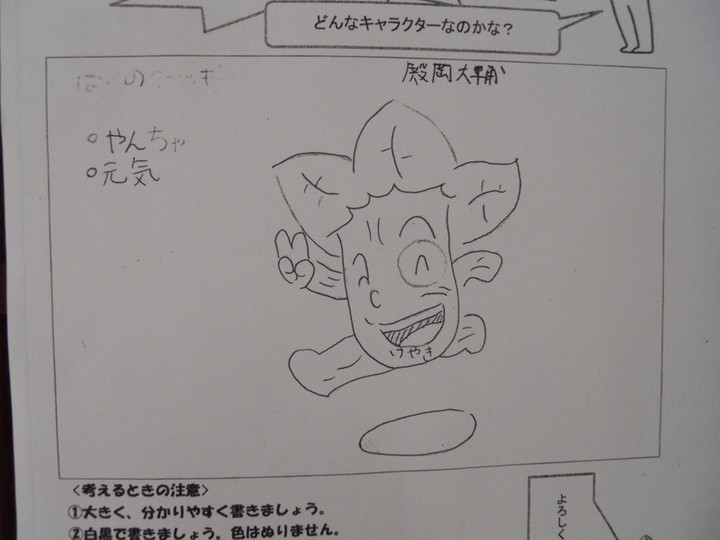 どんなキャラクターなのかな?
殿岡大輔
○やんちゃ
○元気
けやき
<考えるときの注意>
①大きく、分かりやすく書きましょう。
②白黒で書きましょう。色はぬりません。
よろしく